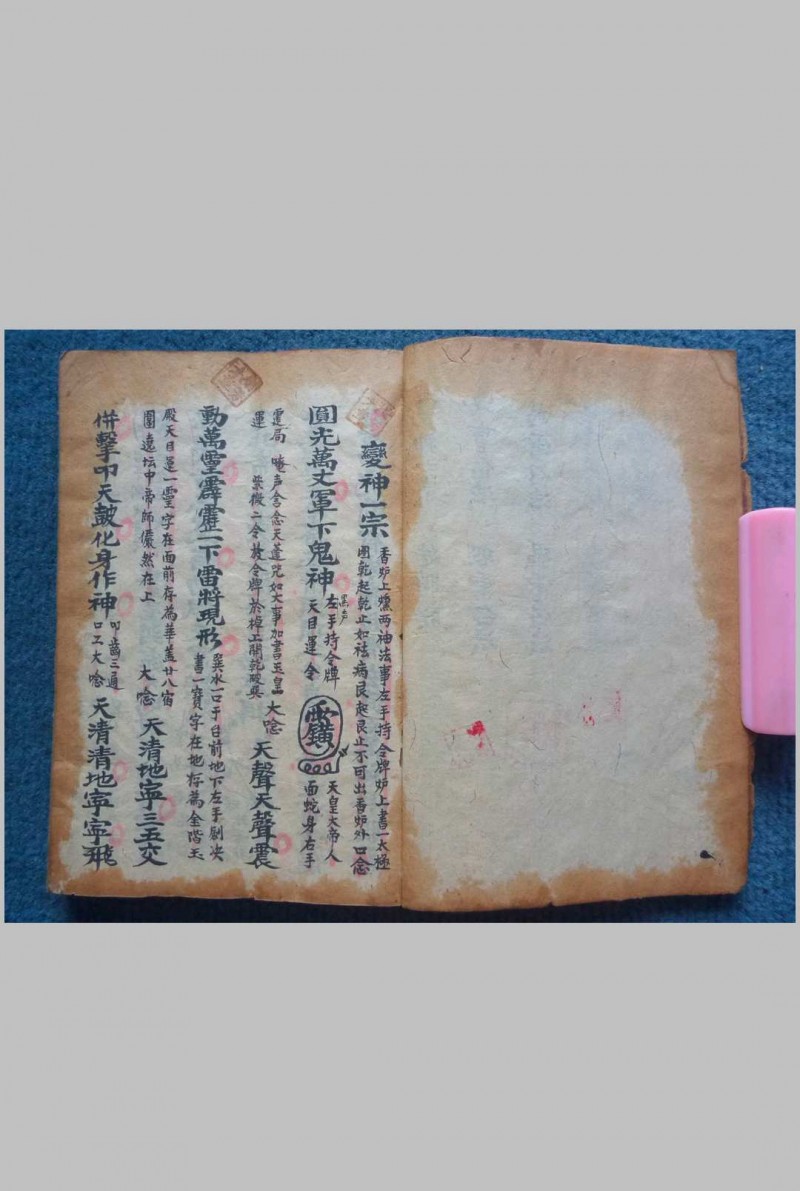 變神一宗 香炉上燻两袖法事左手持令牌炉上書一太極
圈乾起乾止如祛病艮起艮止不可出香炉外口念
圓光萬丈軍下鬼神 左手持令牌 天皇大帝人
天目運令 面蛇身右手
霊局 唵声含念天蓬咒如大事加書玉皇 大唸 天聲天聲震
運 紫微二令放令牌於棹上開乾破巽
動萬霊霹靂一下雷將現形 巽水一口于台前地下左手剔决
書一寶字在地存為金階玉
殿天目運一霊字在面前存為華盖廿八宿
圍遶坛中帝師儼然在上 大唸 天清地寧三五交
併擊叩天鼓化身作神 叩齒三通
口工大唸 天清清地寧寧飛